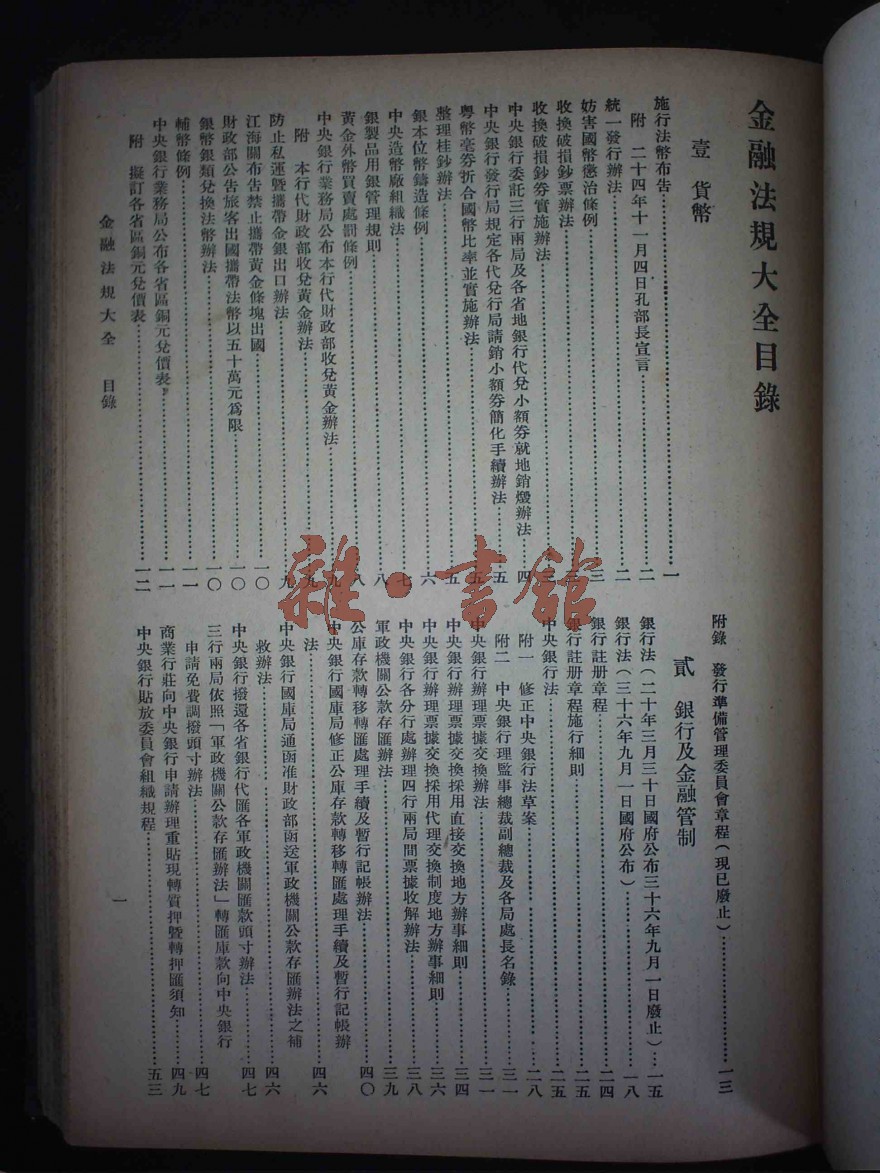 金融法規大全目錄
壹 貨幣
施行法幣布告……一
附 二十四年十一月四日孔部長宣言……二
統一發行辦法……二
妨害國幣懲治條例……三
收換破損鈔票辦法……三
收換破損鈔券實施辦法……三
中央銀行委託三行兩局及各省地銀行代兌小額券就地銷燬辦法……四
中央銀行發行局規定各代兌行局請銷小額券簡化手續辦法……五
粵幣毫券折合國幣比率並實施辦法……五
整理桂鈔辦法……五
銀本位幣鑄造條例……六
中央造幣廠組織法……七
銀製品用銀管理規則……八
黃金外幣買賣處罰條例……八
中央銀行業務局公布本行代財政部收兌黃金辦法……九
附 本行代財政部收兌黃金辦法……九
防止私運暨攜帶金銀出口辦法……九
江海關布告禁止攜帶黃金條塊出國……一〇
財政部公告旅客出國攜帶法幣以五十萬元爲限……一〇
銀幣銀類兌換法幣辦法……一〇
輔幣條例……一一
中央銀行業務局公布各省區銅元兌價表……一一
附 擬訂各省區銅元兌價表……一二
附錄 發行準備管理委員會章程(現已廢止)……一三
貳 銀行及金融管制
銀行法(二十年三月三十日國府公布三十六年九月一日廢止)……一五
銀行法(三十六年九月一日國府公布)……一八
銀行註册章程……二四
銀行註册章程施行細則……二五
中央銀行法……二五
附一 修正中央銀行法草案……二八
附二 中央銀行理監事總裁副總裁及各局處長名錄……三一
中央銀行辦理票據交換辦法……三一
中央銀行辦理票據交換採用直接交換地方辦事細則……三四
中央銀行辦理票據交換採用代理交換制度地方辦事細則……三六
中央銀行各分行處辦理四行兩局間票據收解辦法……三八
軍政機關公款存匯辦法……三九
公庫存款轉移轉匯處理手續及暫行記帳辦法……四〇
中央銀行國庫局修正公庫存款轉移轉匯處理手續及暫行記帳辦
法……四六
中央銀行國庫局通函准財政部函送軍政機關公款存匯辦法之補
救辦法……四六
中央銀行撥還各省銀行代匯各軍政機關匯款頭寸辦法……四七
三行兩局依照「軍政機關公款存匯辦法」轉匯庫款向中央銀行
申請免費調撥頭寸辦法……四七
商業行莊向中央銀行申請辦理重貼現轉質押暨轉押匯須知……四九
中央銀行貼放委員會組織規程……五三
金融法規大全 目錄
一
雜·書館